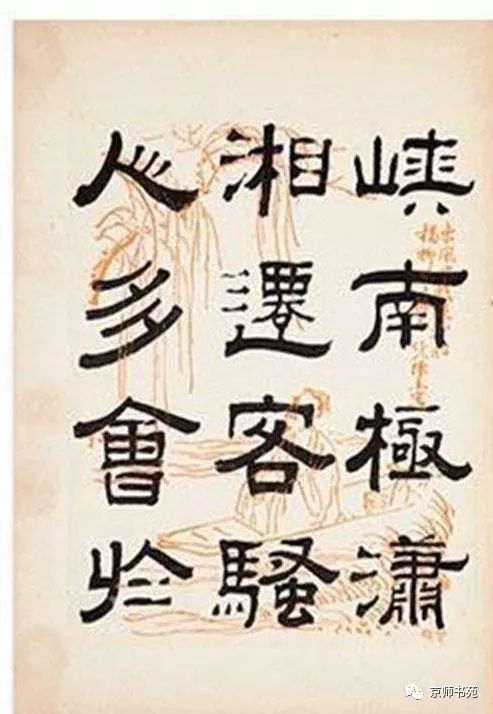 峡南極瀟
湘遷客騷
人多會於
京师书苑